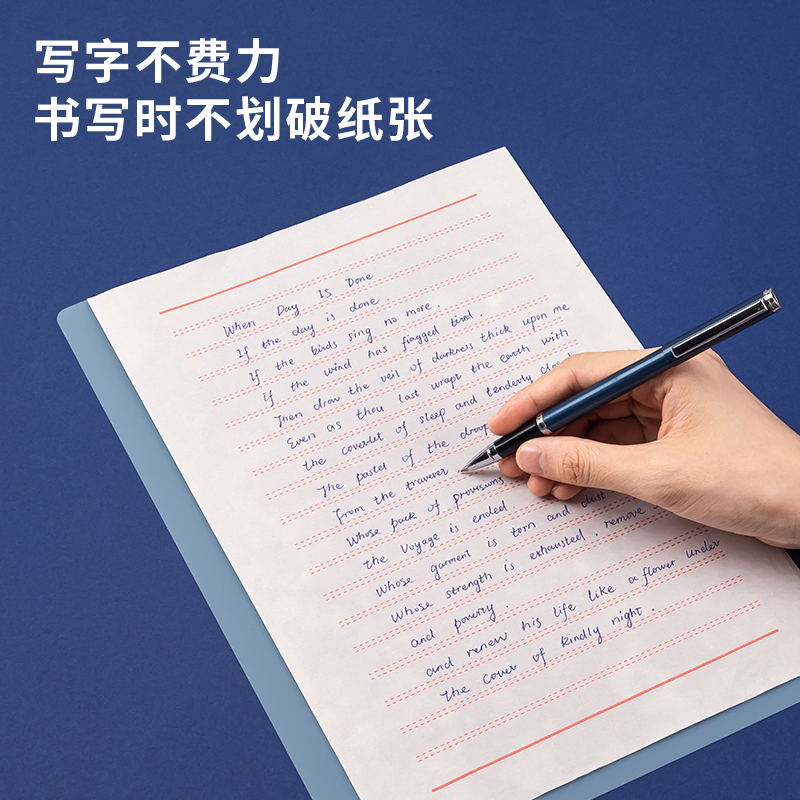 写字不费力
书写时不划破纸张
When Day Is Done
If the day is done
If the birds sing no more.
If the wind has fiagged tired.
Then draw the veil of darkness thick upon me
Even as thou last wrapt the earth with
the coverlet of sleep and tenderly closed
The pastel of the droop
From the traverer
Whose pack of provisions
the Voyage is ended
Whose garment is torn and dust
Whose strength is exhausted. remove
and poverty.
and renew his life like a flower under
the cover of kindly night.